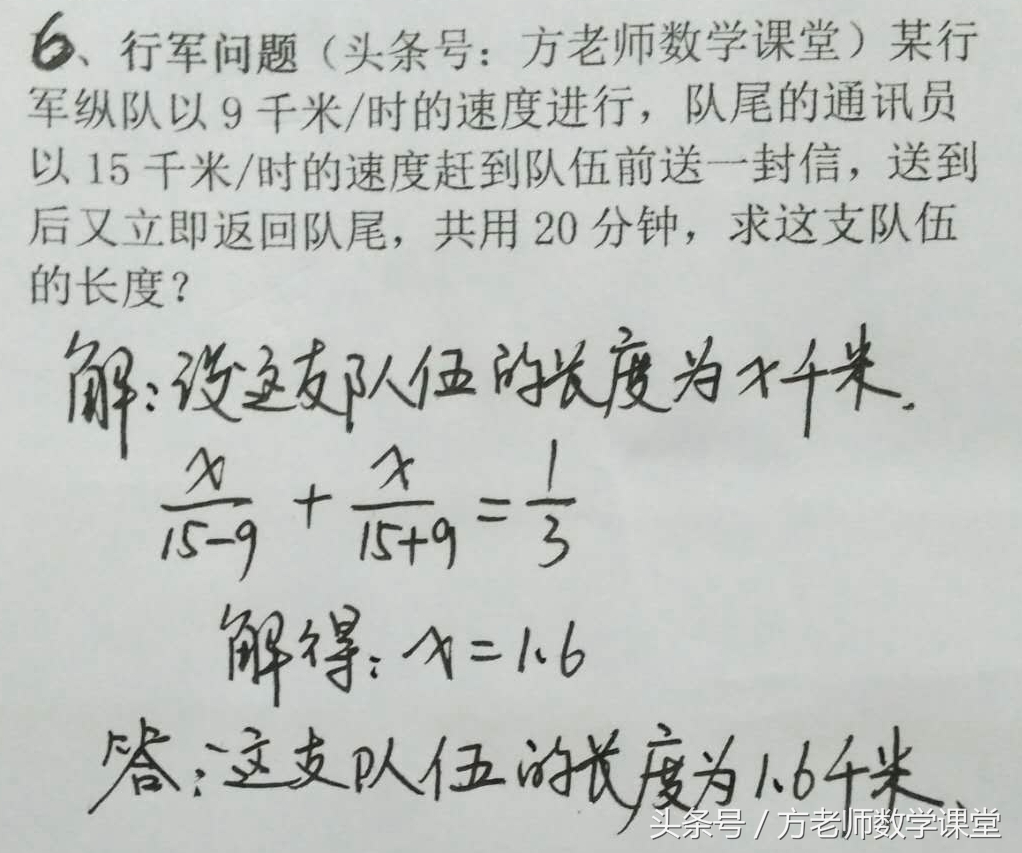 6、行军问题（头条号：方老师数学课堂）某行
军纵队以9千米/时的速度进行，队尾的通讯员
以15千米/时的速度赶到队伍前送一封信，送到
后又立即返回队尾，共用20分钟，求这支队伍
的长度？
解：设这支队伍的长度为x千米.
x/(15-9) + x/(15+9) = 1/3
解得：x=1.6
答：这支队伍的长度为1.6千米、
头条号 / 方老师数学课堂